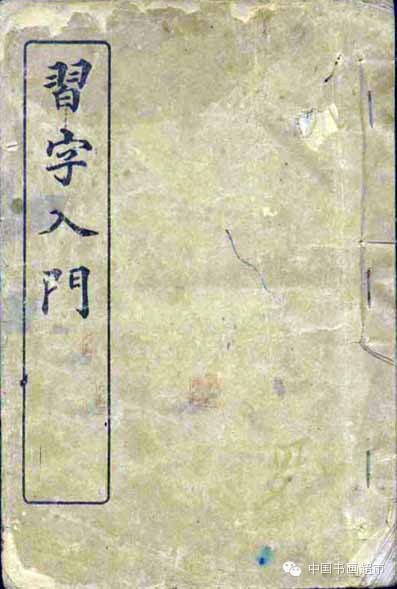 習字入門
中国书画超市